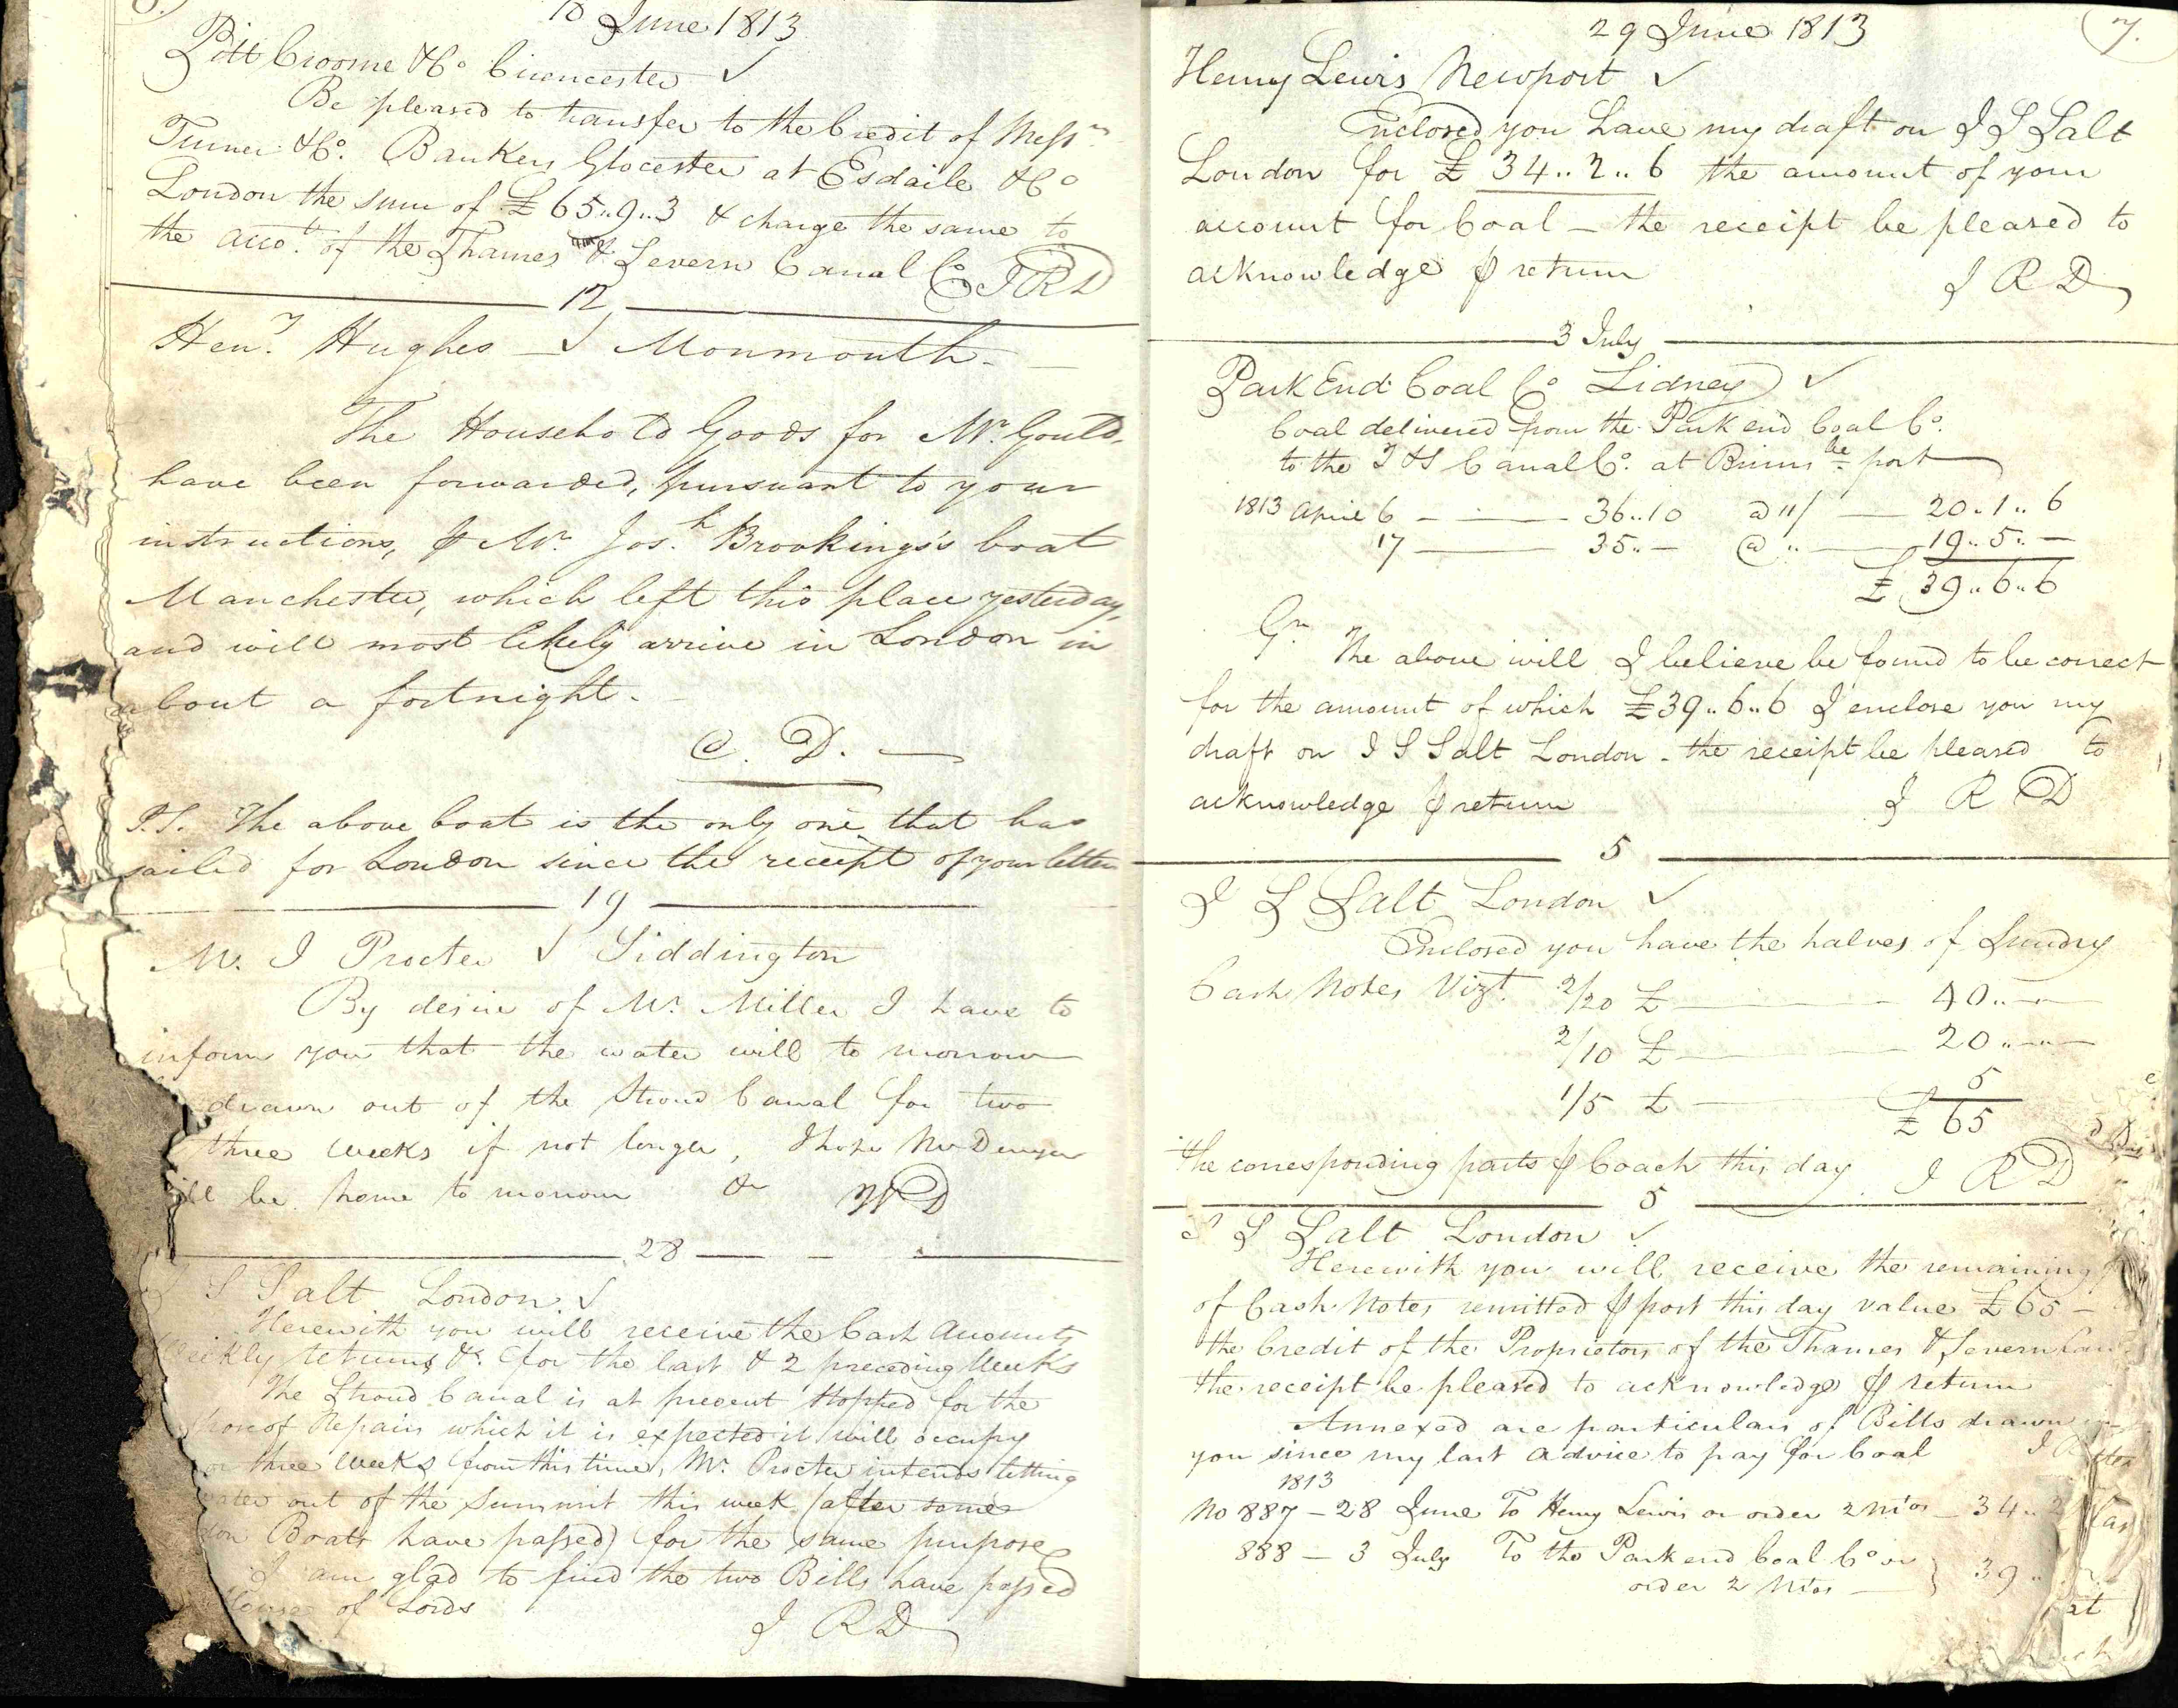 10 June 1813
Pitt Croome &Co Cirencester ✓
Be pleased to transfer to the Credit of Messrs
Turner &Co. Bankers Glocester at Esdaile &Co
London the sum of £65..9..3 & charge the same to
the accot. of the Thames & Severn Canal Co IRD
12
Heny. Hughes ✓ Monmouth
The Household Goods for Mr. Gould,
have been forwarded, pursuant to your
instructions, ⅌ Mr. Josh. Brookings's boat
Manchester, which left this place yesterday,
and will most likely arrive in London in
about a fortnight.
C. D.
P.S. The above boat is the only one that has
sailed for London since the receipt of your letter
19
Mr. I Procter ✓ Siddington
By desire of Mr. Miller I have to
inform you that the water will to morrow
drawn out of the Stroud Canal for two
three weeks if not longer, I hope Mr Denyer
ill be home to morrow &c WD
28
I S Salt London ✓
Herewith you will receive the Cash Accounts
Weekly returns &c. for the last & 2 preceding Weeks
The Stroud Canal is at present stopped for the
pose of Repairs which it is expected it will occupy
or three weeks from this time, Mr. Procter intends letting
water out of the Summit this week (after some
don Boats have passed) for the same purpose
I am glad to find the two Bills have passed
House of Lords
I RD
29 June 1813
7.
Henry Lewis Newport ✓
Enclosed you have my draft on I S Salt
London for £34..2..6 the amount of your
account for Coal – the receipt be pleased to
acknowledge ⅌ return
I R D
3 July
Park End Coal Co Lidney ✓
Coal delivered from the Park end Coal Co.
to the T &S Canal Co. at Brims be port
1813 April 6 — 36..10 @ 11/ — 20..1..6
17 — 35..— @ .. — 19..5..—
£39..6..6
Gn
The above will I believe be found to be correct
for the amount of which £39..6..6 I enclose you my
draft on I S Salt London – the receipt be pleased to
acknowledge ⅌ return
I R D
5
I S Salt London ✓
Enclosed you have the halves of Sundry
Cash Notes Vizt. 2/20 £ — 40..—
2/10 £ — 20..—
1/5 £ — 5
£65
the corresponding parts ⅌ Coach this day I RD
5
I S Salt London ✓
Herewith you will receive the remaining
of Cash Notes remitted ⅌ post this day value £65 –
the Credit of the Proprietors of the Thames & Severn Can
the receipt be pleased to acknowledge ⅌ return
Annexed are particulars of Bills drawn
you since my last advice to pay for Coal I R
1813
No 887 – 28 June To Henry Lewis or order 2 Mtos – 34..2
888 – 3 July To the Park end Coal Co or
order 2 Mtos — } 39..